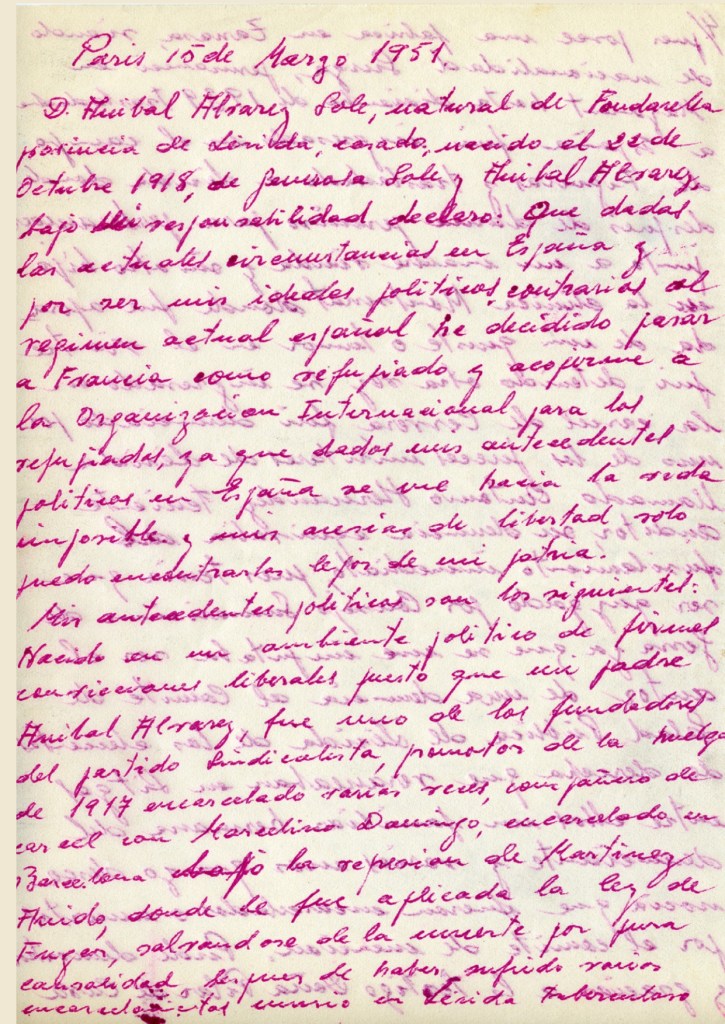 Paris 15 de Marzo 1951
D. Anibal Alvarez Sole, natural de Fondarella
provincia de Lérida, casado, nacido el 22 de
Octubre 1918, de Generosa Sole y Anibal Alvarez,
bajo mi responsatilidad declaro: Que dadas
las actuales circunstancias en España y
por ser mis ideales politicos contrarios al
regimen actual español he decidido pasar
a Francia como refugiado y acogerme a
la Organizacion Internacional para los
refugiados, ya que dados mis antecedentes
politicos en España se me hacia la vida
imposible y mis ansias de libertad solo
puedo encontrarlas lejos de mi patria.
Mis antecedentes politicos son los siguientes:
Nacido en un ambiente politico de firmes
convicciones liberales puesto que mi padre
Anibal Alvarez, fue uno de los fundadores
del partido Sindicalista, promotor de la huelga
de 1917 encarcelado varias veces, compañero de
carcel con Marcelino Domingo, encarcelado en
Barcelona bajo la represion de Martinez
Anido, donde le fue aplicada la ley de
Fugas, salvandose de la muerte por pura
causalidad despues de haber sufrido varios
encarcelamientos murio en Lérida tuberculoso